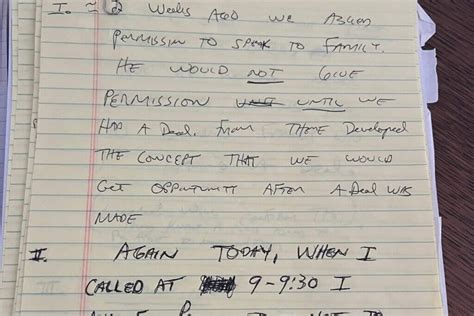 I. ≈ 2 WEEKS AGO WE ASKED
PERMISSION TO SPEAK TO FAMILY.
HE WOULD NOT GIVE
PERMISSION UNTIL WE
HAD A DEAL. FROM THERE Developed
THE CONCEPT THAT WE WOULD
GET OPPORTUNITY AFTER A DEAL WAS
MADE
II. AGAIN TODAY, WHEN I
CALLED AT 9-9:30 I